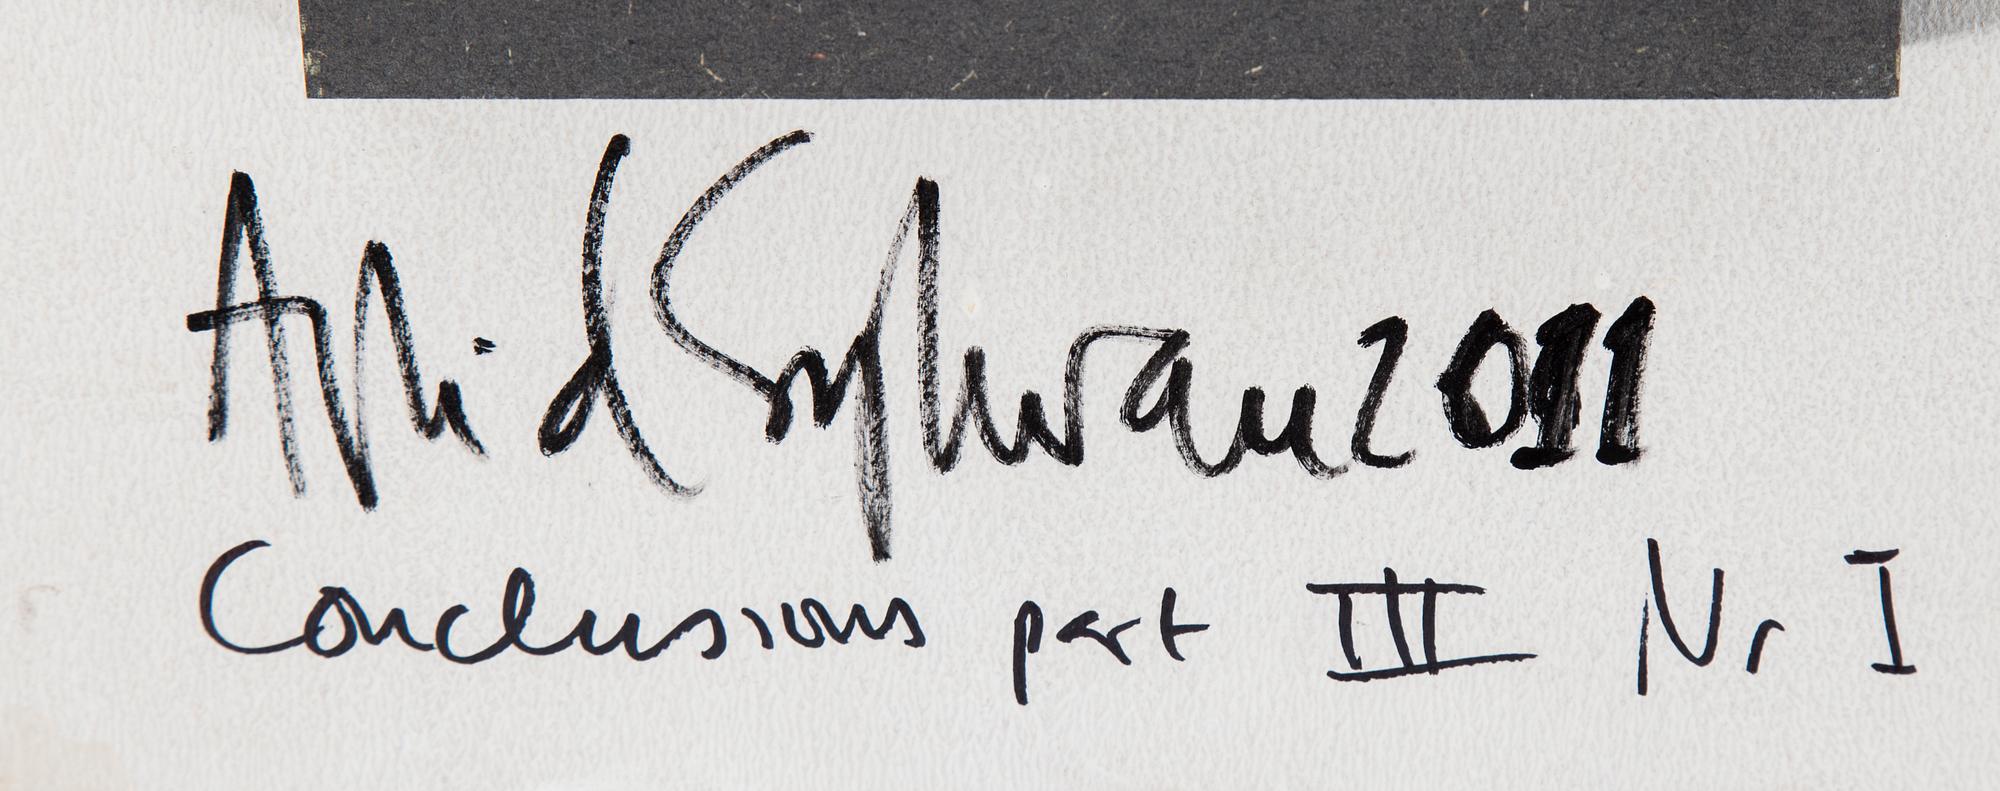 Arvid Sylwan 2011
Conclusions part III Nr I